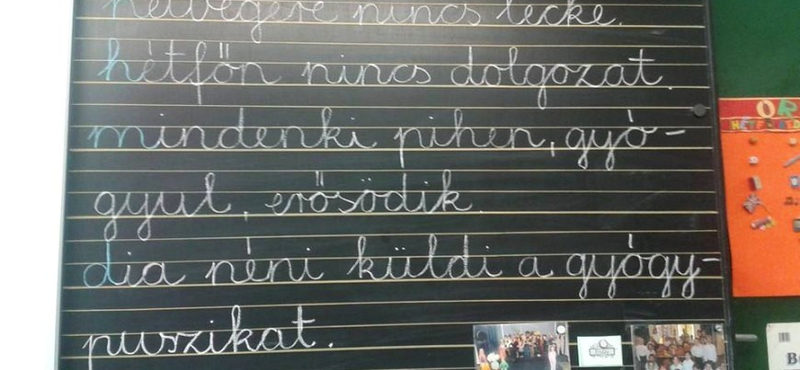 hétvégére nincs lecke.
hétfőn nincs dolgozat.
mindenki pihen, gyó-
gyul, erősödik.
dia néni küldi a gyógy-
puszikat.